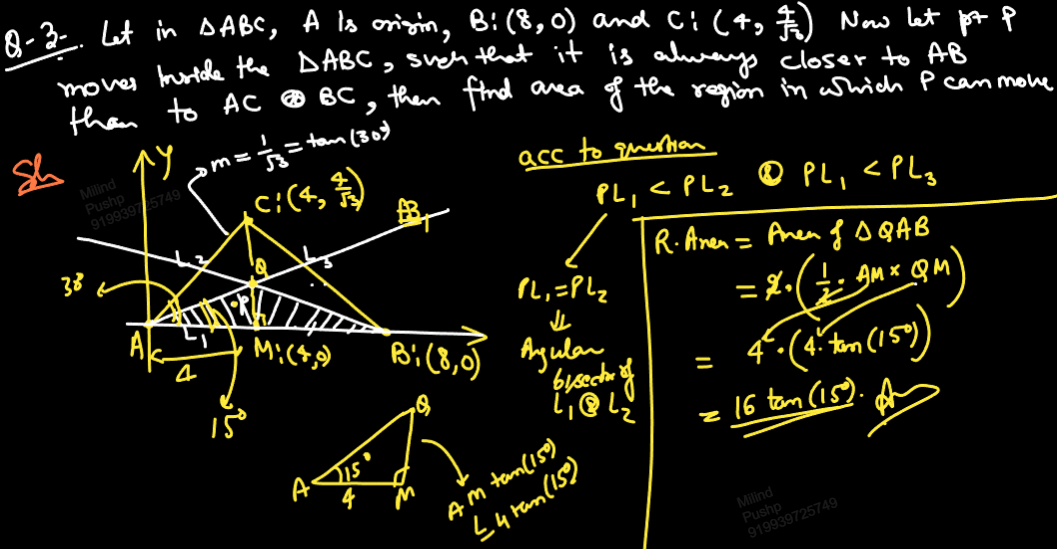 Q-3-. Let in ΔABC, A Is origin, B:(8,0) and C:(4, 4/√3) Now let pt P
moves Inside the ΔABC, such that it is always closer to AB
than to AC BC, then find area of the region in which P can move
Sln
Y
m = 1/√3 = tan(30°)
C:(4, 4/√3)
L2
L3
Q
P
30°
A
L1
M:(4,0)
B:(8,0)
4
15°
Q
15°
A
4
M
AM tan(15°)
4 tan(15°)
acc to question
PL1 < PL2 & PL1 < PL3
PL1 = PL2
⇓
Angular
bisector of
L1 & L2
R.Area = Area of ΔQAB
= 2·(1/2 · AM × QM)
= 4·(4·tan(15°))
= 16 tan(15°). A
Milind
Pushp
919939725749
Milind
Pushp
919939725749